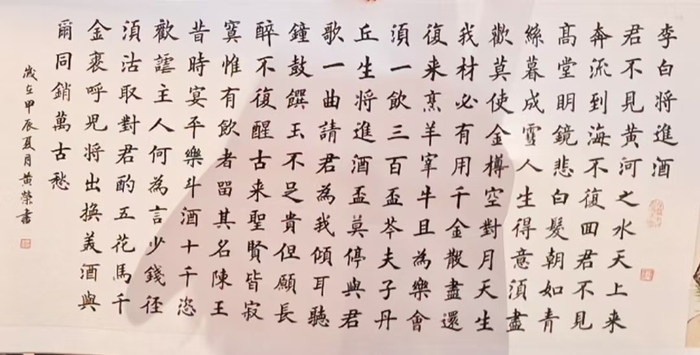 李白將進酒
君不見黃河之水天上来
奔流到海不復回君不見
高堂明鏡悲白髮朝如青
絲暮成雪人生得意須盡
歡莫使金樽空對月天生
我材必有用千金散盡還
復来烹羊宰牛且為樂會
須一飲三百盃岑夫子丹
丘生將進酒盃莫停與君
歌一曲請君為我傾耳聽
鐘鼓饌玉不足貴但願長
醉不復醒古来聖賢皆寂
寞惟有飲者留其名陳王
昔時宴平樂斗酒十千恣
歡謔主人何為言少錢徑
須沽取對君酌五花馬千
金裘呼兒將出換美酒與
爾同銷萬古愁
歲在甲辰夏月黃榮書